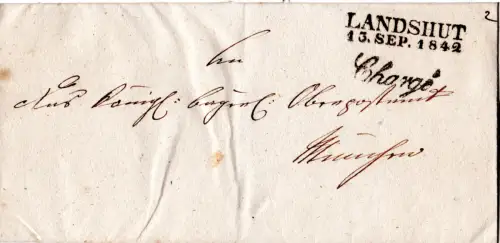 2
LANDSHUT
15. SEP. 1842
Chargé
An
Das Königl: bayer: Oberpostamt
München